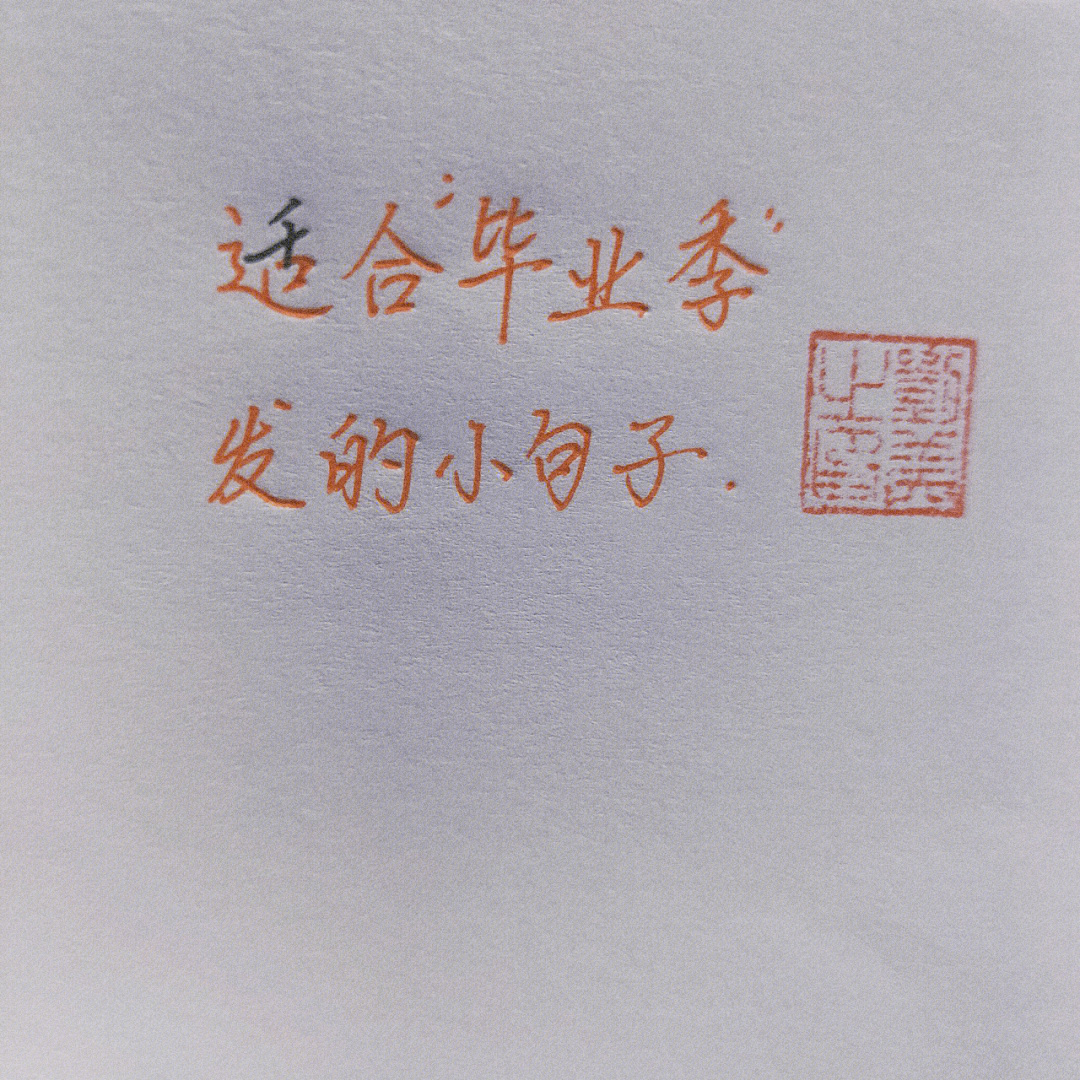 适合“毕业季”
发的小句子.